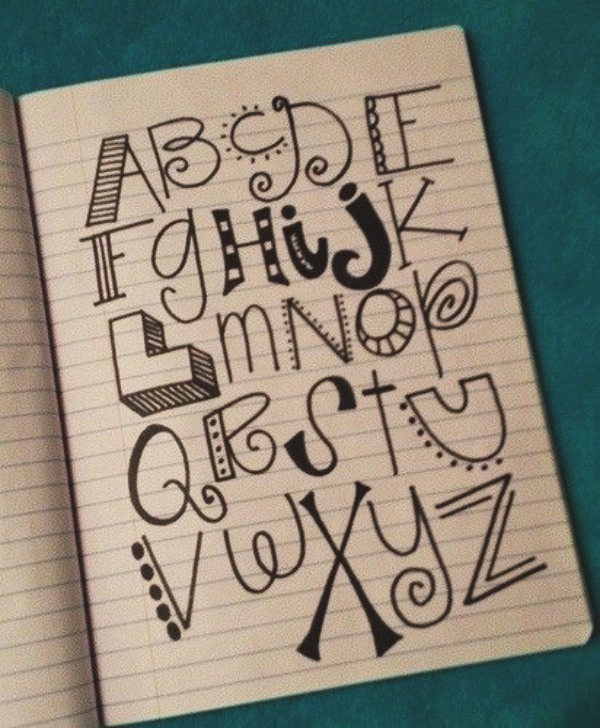 ABCDE
FgHijK
LmNOp
QRStU
VwXyZ